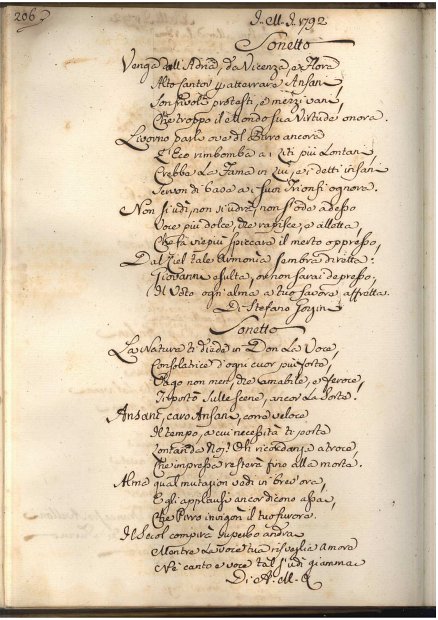 206
1792
Sonetto
Venga dall'Adria, da Vicenza, e Flora
Alto cantor atterrare Ansani,
Son frivoli protesti, e mezzi vani,
Che troppo il Mondo sua Virtude onora.
Livorno parli ove del Pirro ancora
L'Eco rimbomba a i Liti più Lontani,
Crebbe La Fama in Lui, e i detti insani
Servon di base a i suoi Trionfi ognora.
Non s'udì, non s'udrà, non s'ode adesso
Voce più dolce, che rapisce, e alletta,
Che fa viepiù spiccare il merto oppresso,
Dal Ciel tale Armonia sembra diretta:
Giovanni esulta, or non sarai depresso,
Il Voto ogni alma a tuo favore affretta.
Di Stefano
Sonetto
La Natura ti diede in Don La Voce,
Consolatrice d'ogni cuor più forte,
Vago non men, che amabile, e feroce,
Sulle scene, ancor La sorte.
Ansani, caro Ansani, corre veloce
Il tempo, a cui necessità ti porta
Lontan da Noi! Oh ricordanza atroce,
Che impressa resterà fino alla morte.
Alma qual mutazion vedi in brev'ora,
E gli applausi ancor dicono assai,
Che Pirro invigorì il tuo furore.
Il Seicol compirà superbo andrà
Mentre La Voce tua risveglia Amore
Nè canto e voce tal s'udì giammai
Di A. M. R